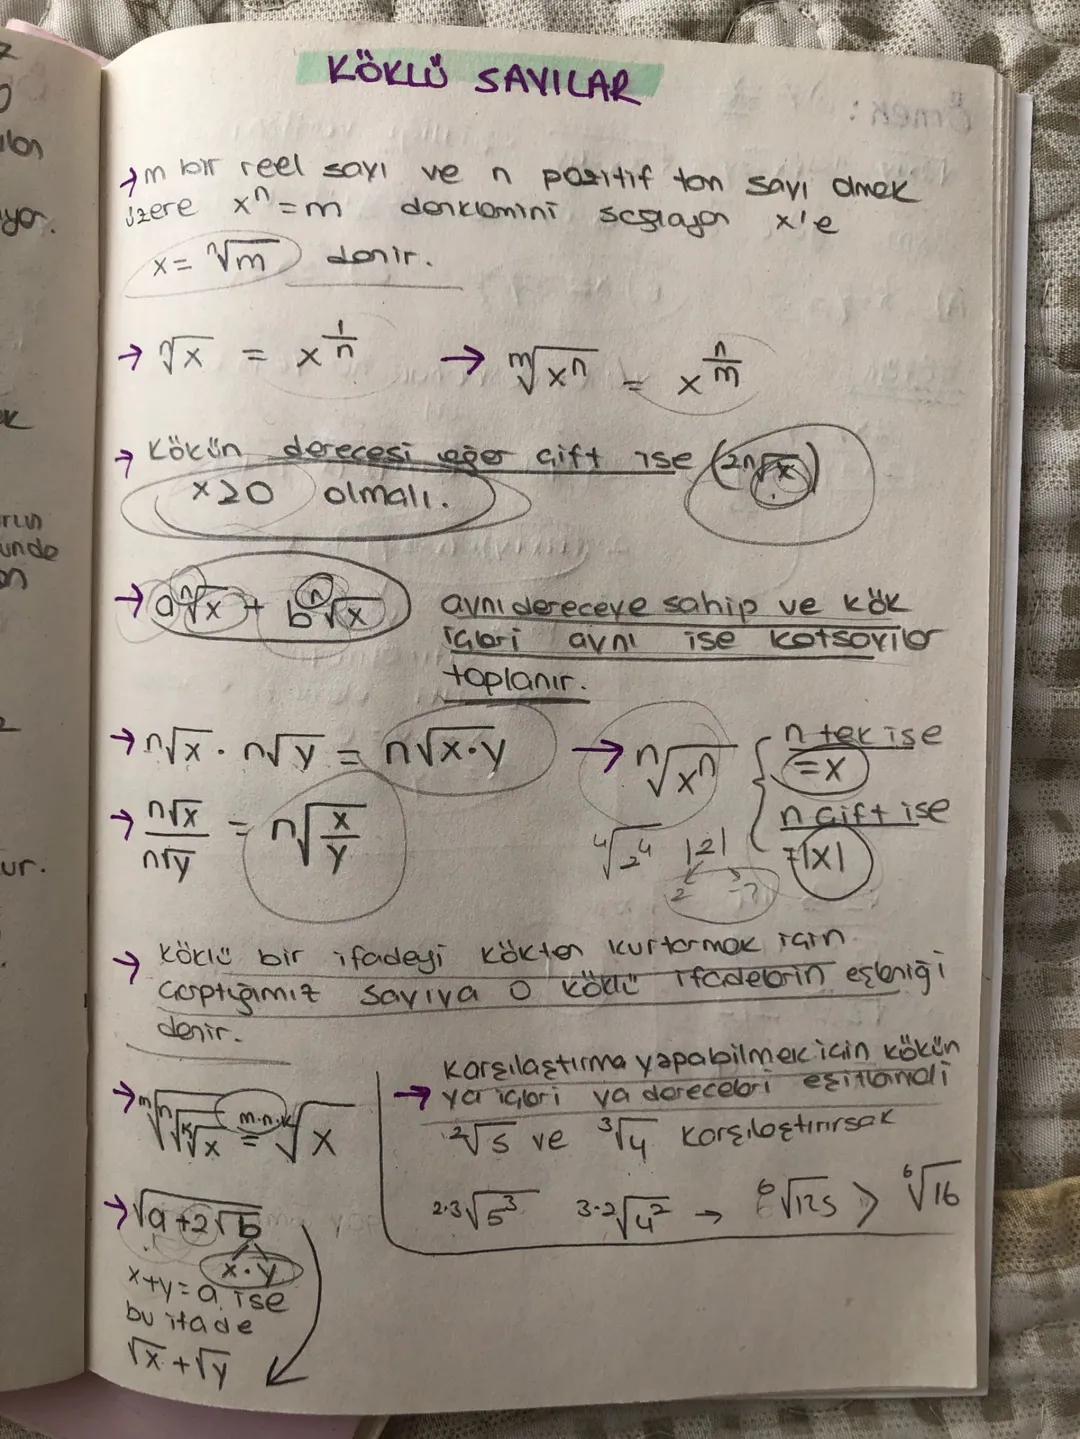 KÖKLÜ SAYILAR
→ m bir reel sayı ve n pozitif tam sayı olmak
üzere xⁿ=m denklemini sağlayan x'e
x = ⁿ√m denir.
→ ⁿ√x = x^(1/n) → ᵐ√xⁿ = x^(n/m)
→ Kökün derecesi eğer çift ise (2n√x)
x≥0 olmalı.
→ aⁿ√x + bⁿ√x aynı dereceye sahip ve kök
içleri aynı ise katsayılar
toplanır.
→ n√x · n√y = n√x·y → ⁿ√xⁿ { n tek ise
= x
n çift ise
= |x|
→ n√x / n√y = n√(x/y) ⁴√2⁴ |2|
2 -2
→ Köklü bir ifadeyi kökten kurtarmak için
çarptığımız sayıya o köklü ifadelerin eşleniği
denir.
→ ᵐ√ⁿ√ᵏ√x = m·n·k√x
→ √a+2√b
x·y
x+y=a ise
bu ifade
√x + √y
→ Karşılaştırma yapabilmek için kökün
ya içleri ya dereceleri eşitlenmeli
²√5 ve ³√4 karşılaştırırsak
2·3√5³ 3·2√4² → ⁶√125 > ⁶√16